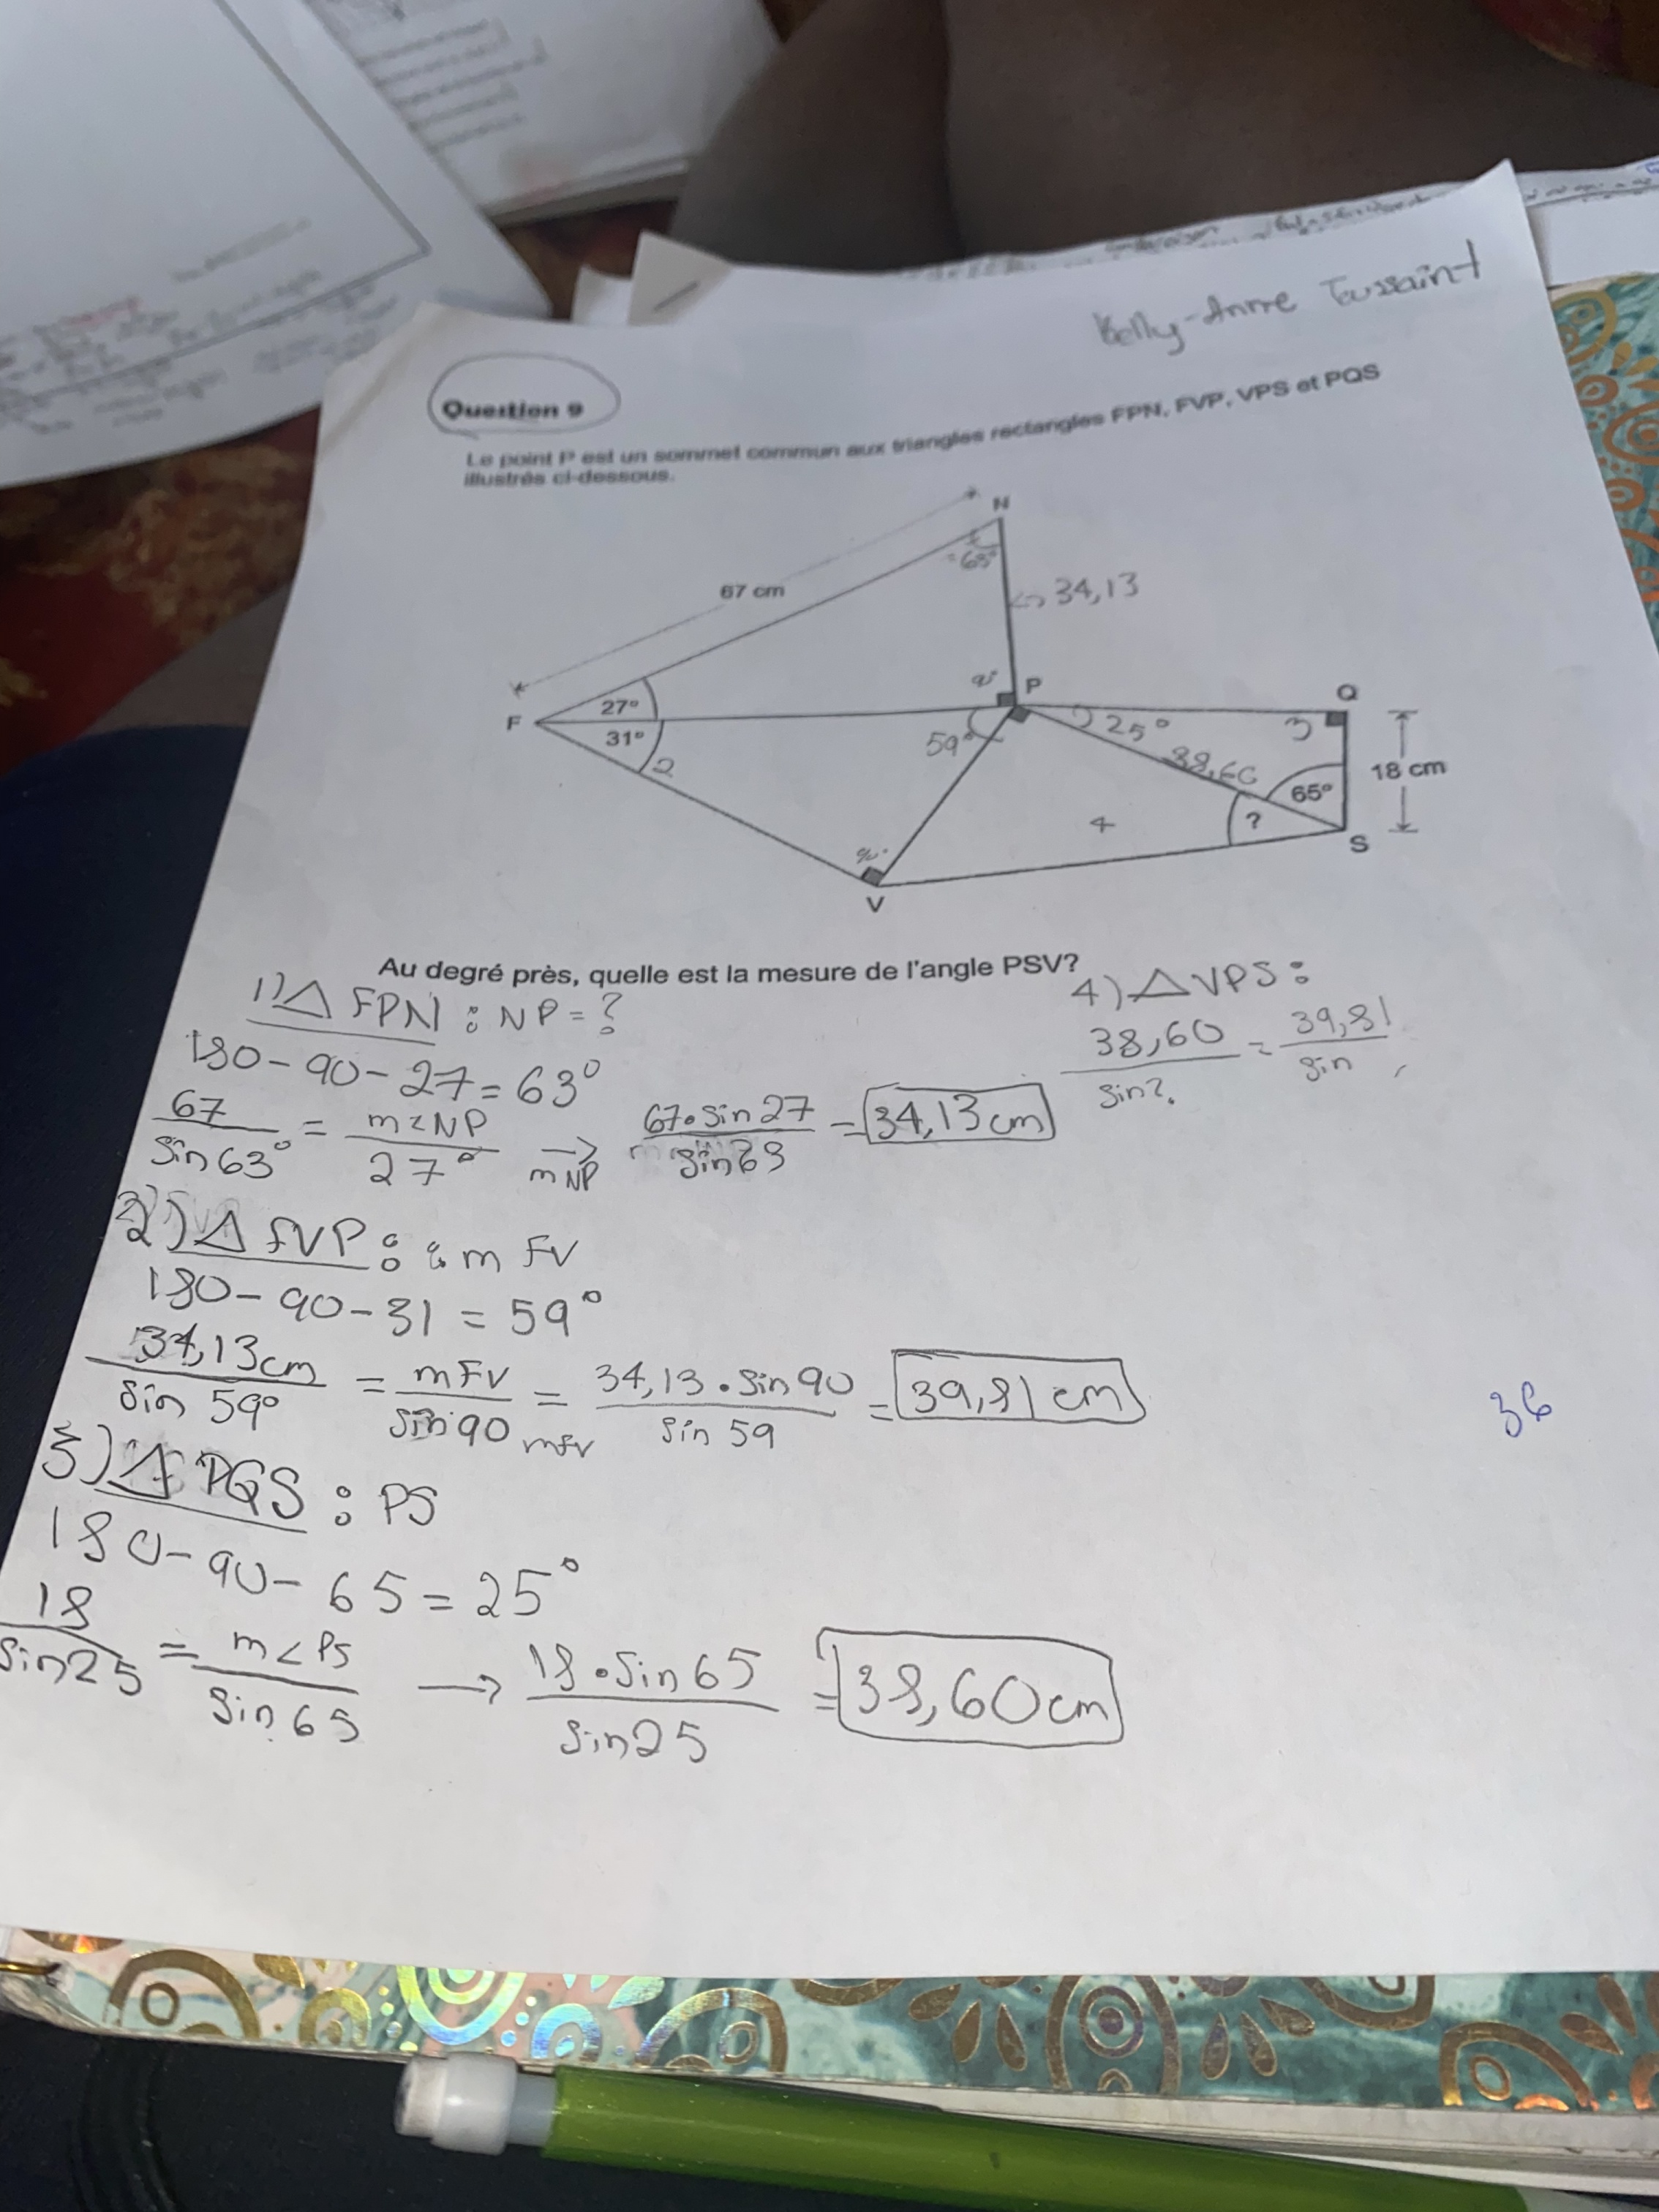 Kelly-Anne Toussaint
Question 9
Le point P est un sommet commun aux triangles rectangles FPN, FVP, VPS et PQS
illustrés ci-dessous.
N
= 63°
67 cm
34,13
90°
P
Q
F
27°
31°
2
59°
25°
3
38,60
18 cm
65°
?
4
S
90°
V
Au degré près, quelle est la mesure de l'angle PSV?
1) △ FPN : NP = ?
180 - 90 - 27 = 63°
67 / sin 63° = m<NP / 27° → mNP 67 • sin 27 / sin 63 = 34,13 cm
2) △ FVP : m FV
180 - 90 - 31 = 59°
34,13 cm / sin 59° = mFV / sin 90 mFV = 34,13 • sin 90 / sin 59 = 39,81 cm
3) △ PQS : PS
180 - 90 - 65 = 25°
18 / sin 25 = m<PS / sin 65 → 18 • sin 65 / sin 25 = 38,60 cm
4) △ VPS :
38,60 / sin ? = 39,81 / sin
36